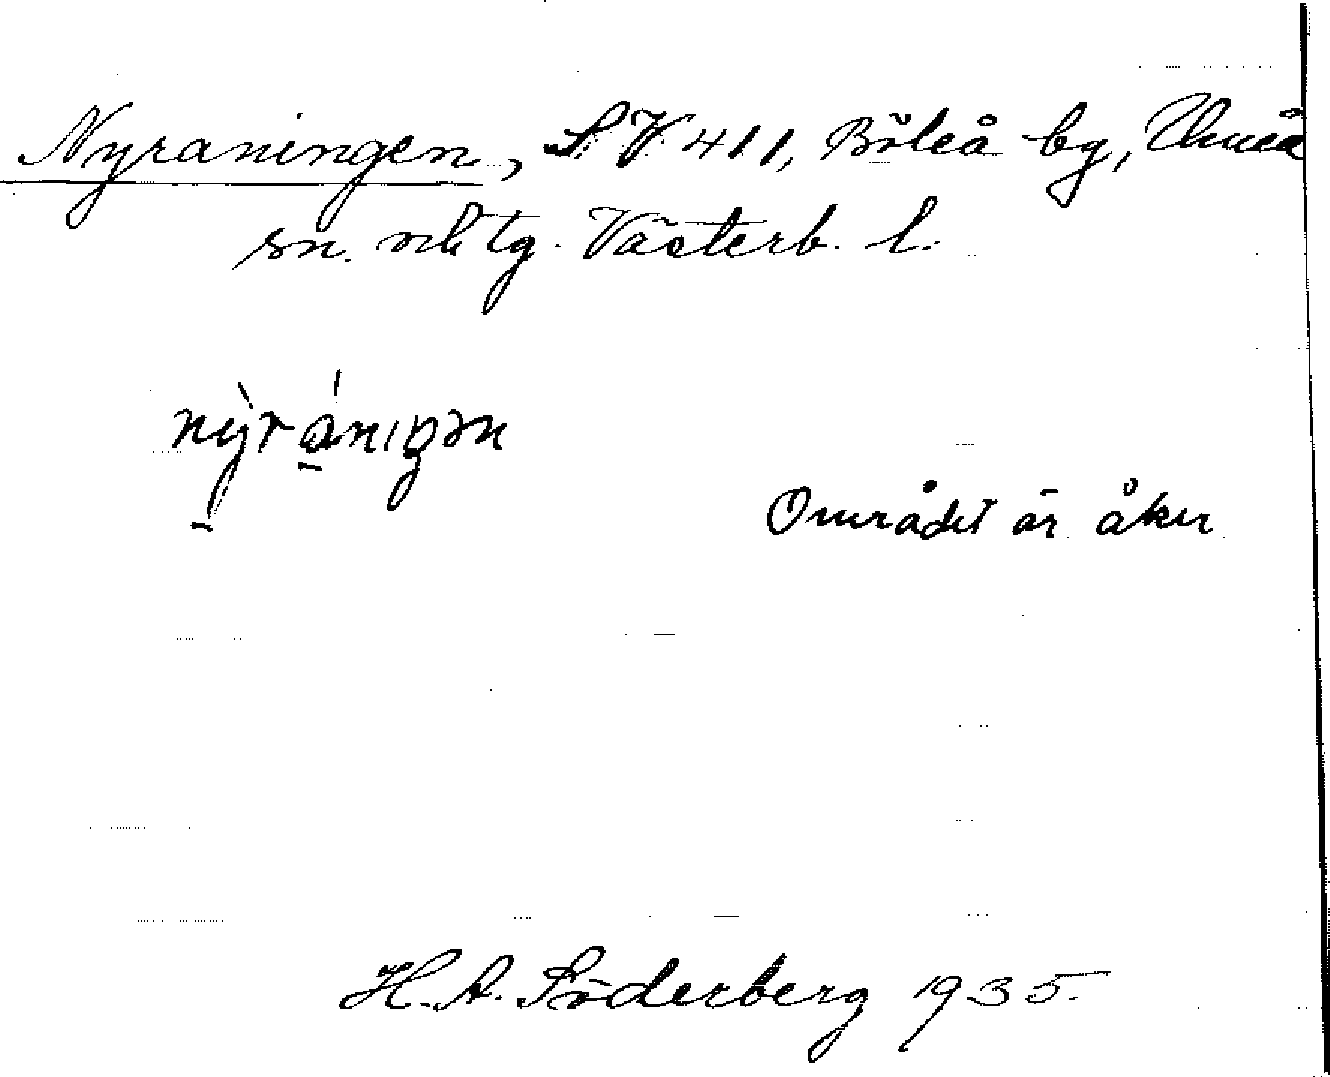 Nyraningen, S.V. 411, Böleå by, Umeå
sn. och tg. Västerb. l.
nỳr ánıŋən
Området är åker
H. A. Söderberg 1935.